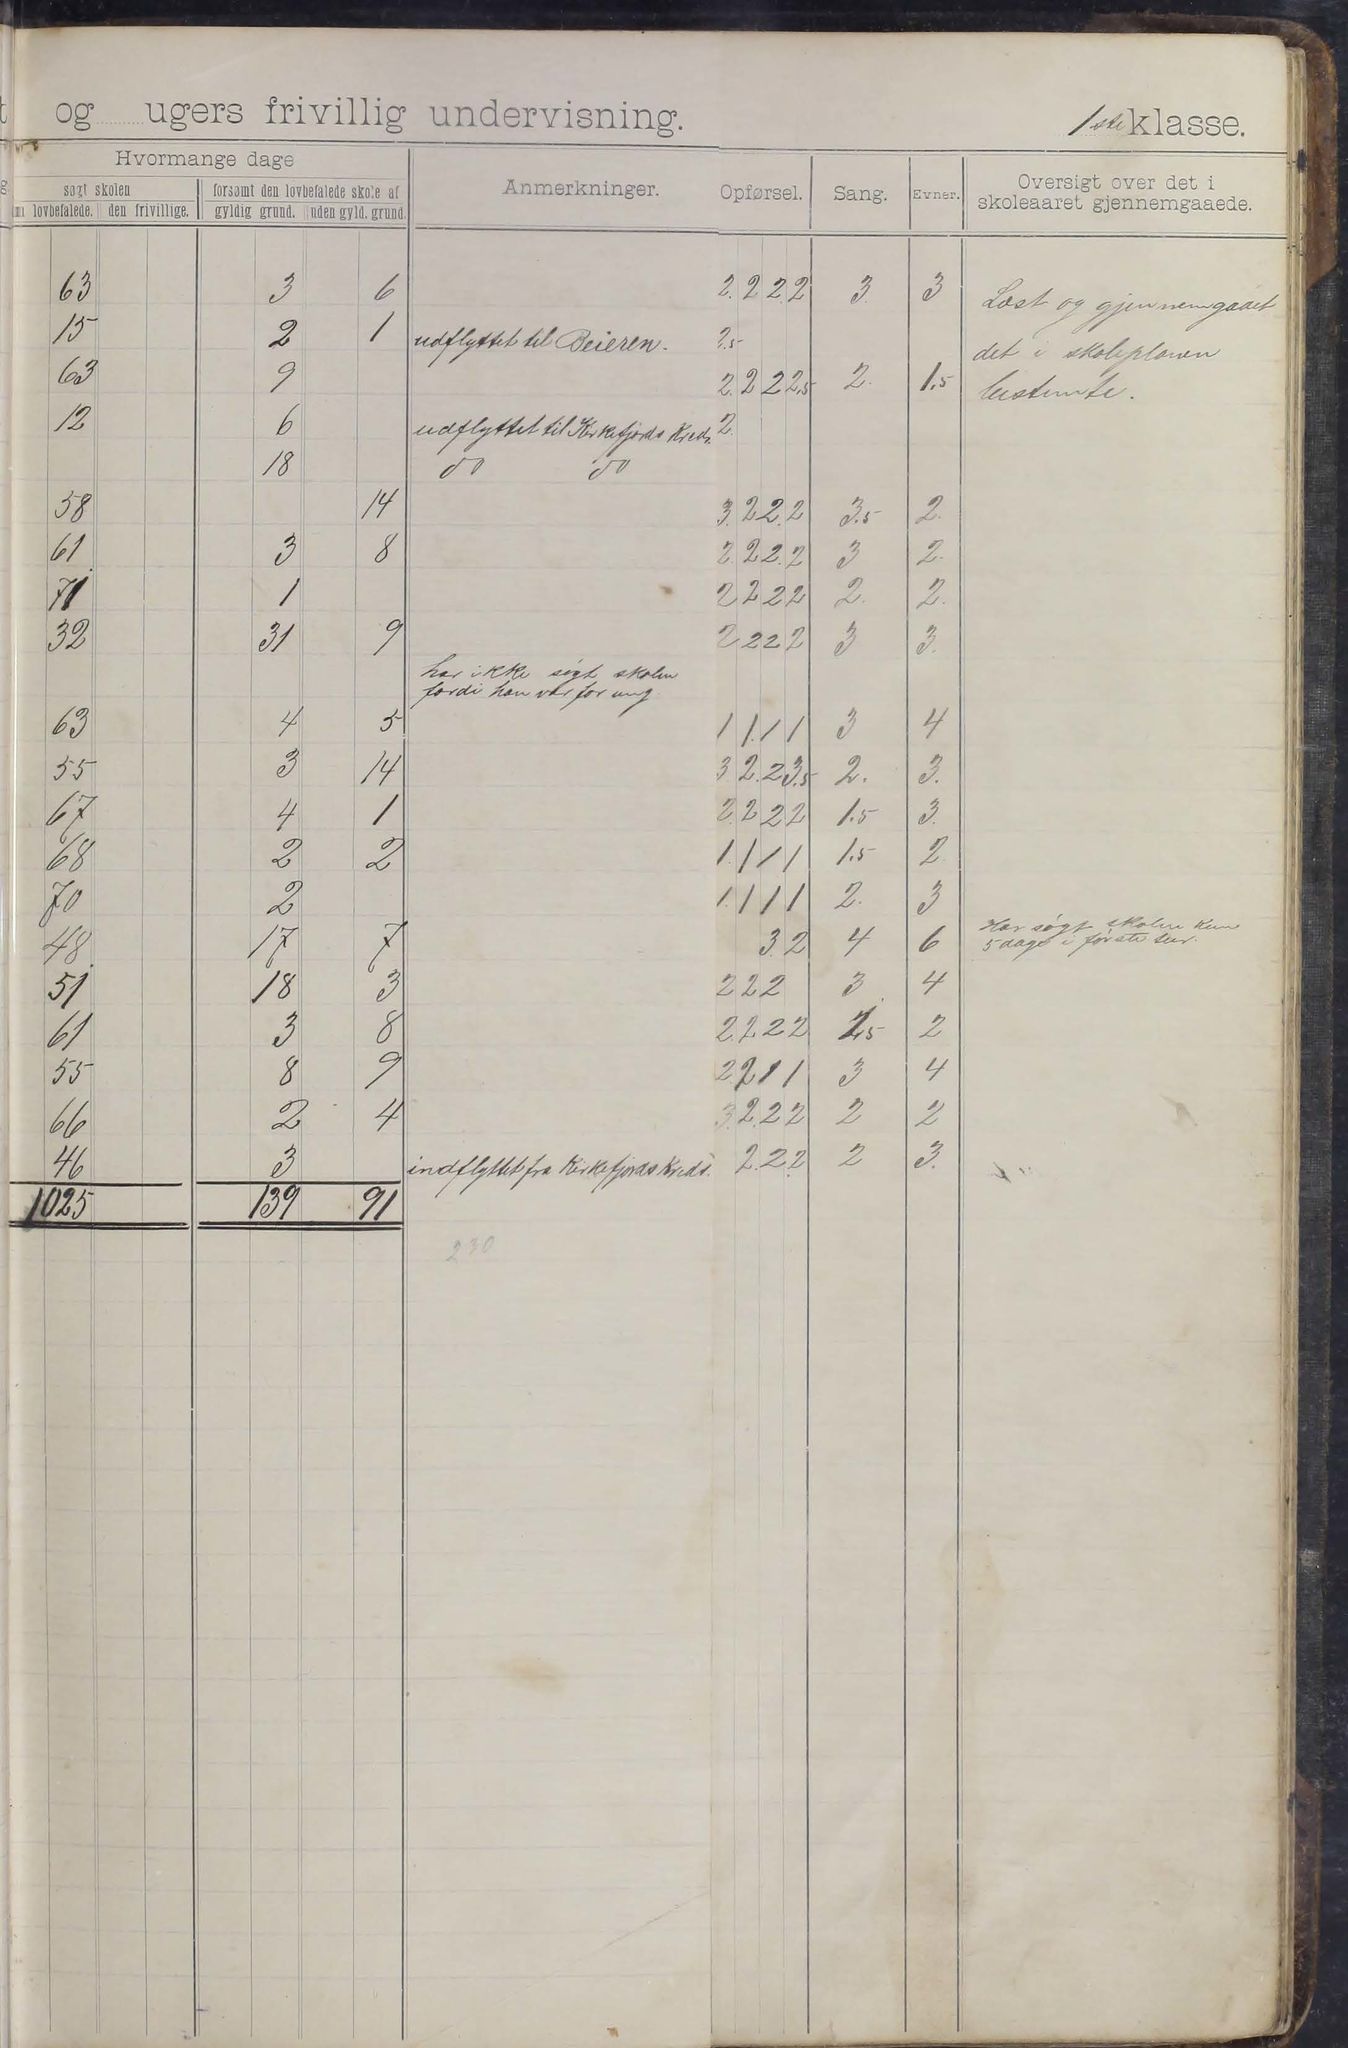 og ugers frivillig undervisning. 1ste klasse.
Hvormange dage
søgt skolen forsømt den lovbefalede skole af Anmerkninger. Opførsel. Sang. Evner. Oversigt over det i
lovbefalede. den frivillige. gyldig grund. uden gyld. grund. skoleaaret gjennemgaaede.
63 3 6 2. 2 2 2 3 3 Læst og gjennemgaaet
15 2 1 udflyttet til Beieren. 2.5
det i skoleplanen
63 9 2. 2 2 2.5 2. 1.5 bestemte.
12 6 udflyttet til Kirkefjords Kreds. 2.
18 do do
58 14 3. 2 2. 2 3.5 2.
61 3 8 2. 2 2. 2 3 2.
71 1 2 2 2 2 2. 2.
32 31 9 2 2 2 2 3 3.
har ikke søgt skolen
fordi han var for ung.
63 4 5 1 1. 1 1 3 4
55 3 14 3 2. 2 3.5 2. 3.
67 4 1 2. 2 2 2 1.5 3.
68 2 2 1. 1 1 1 1.5 2
70 2 1. 1 1 1 2. 3
Har søgt skolen kun
48 17 7 3 2 4 6 5 dage i første
51 18 3 2 2 2 3 4
61 3 8 2. 2. 2 2 2.5 2
55 8 9 2 2 1 1 3 4
66 2 4 3. 2. 2 2 2 2
46 3 indflyttet fra Kirkefjords Kreds. 2. 2. 2 2 3.
1025 139 91
230